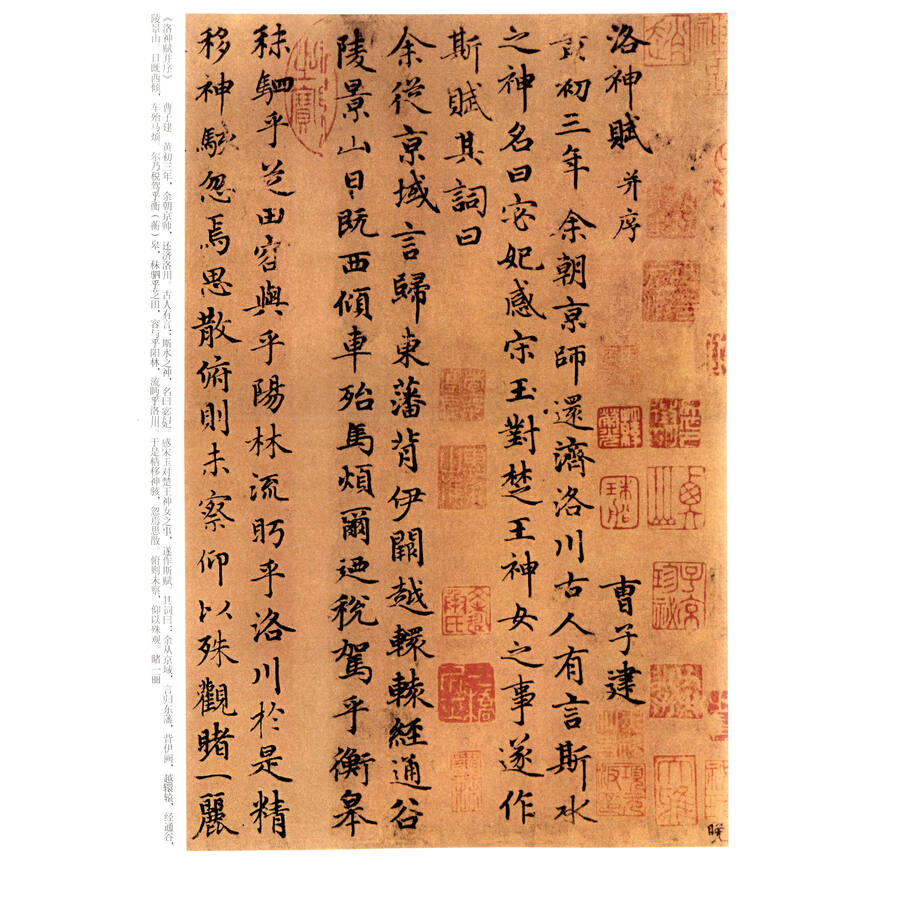 晚
洛神賦 并序 曹子建
黃初三年余朝京師還濟洛川古人有言斯水
之神名曰宓妃感宋玉對楚王神女之事遂作
斯賦其詞曰
余從京域言歸東藩背伊闕越轘轅經通谷
陵景山日既西傾車殆馬煩爾迺稅駕乎衡皋
秣駟乎芝田容與乎陽林流眄乎洛川於是精
移神駭忽焉思散俯則未察仰以殊觀睹一麗
《洛神赋并序》 曹子建 黄初三年，余朝京师，还济洛川。古人有言：斯水之神，名曰宓妃。感宋玉对楚王神女之事，遂作斯赋。其词曰：余从京域，言归东藩，背伊阙，越轘辕，经通谷，
陵景山。日既西倾，车殆马烦。尔乃税驾乎衡（蘅）皋，秣驷乎芝田，容与乎阳林，流眄乎洛川。于是精移神骇，忽焉思散。俯则未察，仰以殊观。睹一丽